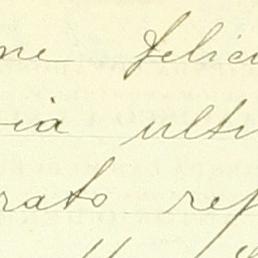 ne felici
ia ultr
rato ref